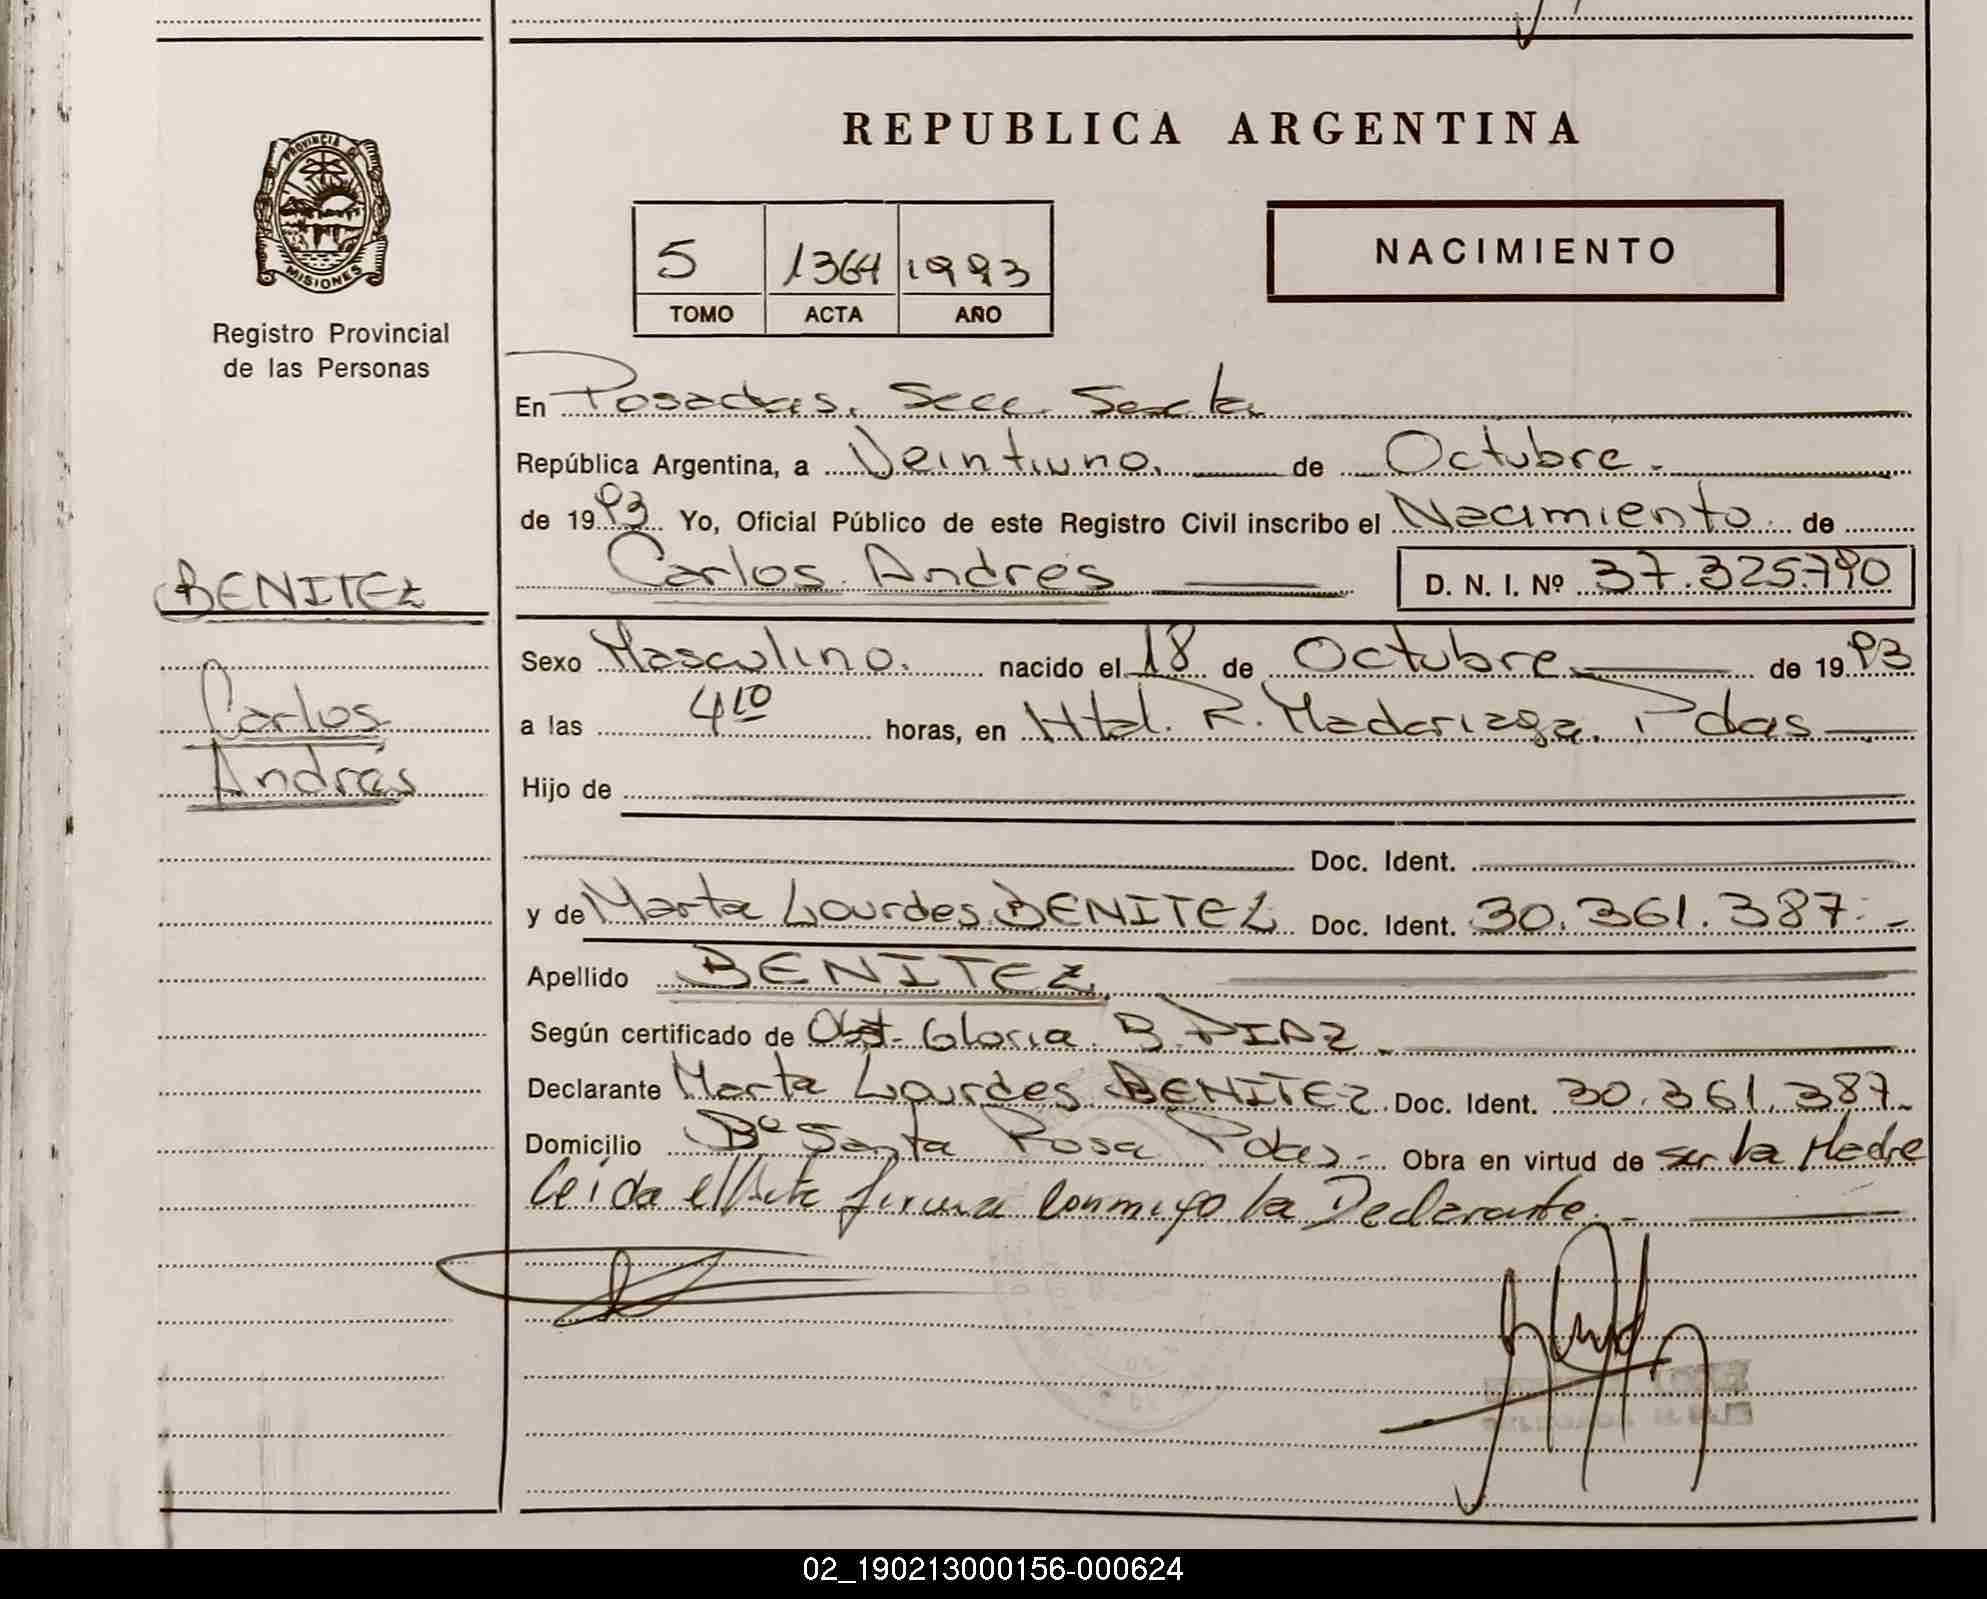 PROVINCIA DE
MISIONES
Registro Provincial
de las Personas
BENITEZ
Carlos
Andrés
REPUBLICA ARGENTINA
5 1364 1993
TOMO ACTA AÑO
NACIMIENTO
En Posadas. Secc. Sexta
República Argentina, a Veintiuno. de Octubre.
de 1993 Yo, Oficial Público de este Registro Civil inscribo el Nacimiento de
Carlos Andrés D. N. I. Nº 37.325.790
Sexo Masculino. nacido el 18 de Octubre de 1993
a las 4 10 horas, en Htal. R. Madariaga. Pdas
Hijo de
Doc. Ident.
y de Marta Lourdes BENITEZ Doc. Ident. 30.361.387.-
Apellido BENITEZ
Según certificado de Obst. Gloria B. DIAZ.
Declarante Marta Lourdes BENITEZ. Doc. Ident. 30.361.387.
Domicilio Bº Santa Rosa Pdas.- Obra en virtud de ser la Madre
leida el Acta firma conmigo la Declarante.-
02_190213000156-000624